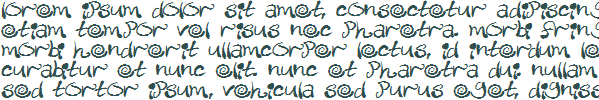 lorem ipsum dolor sit amet, consectetur adipiscing
etiam tempor vel risus nec pharetra. morbi
morbi hendrerit ullamcorper lectus, id interdum
curabitur et nunc elit. nunc et pharetra dui. nullam
sed tortor ipsum, vehicula sed purus eget,